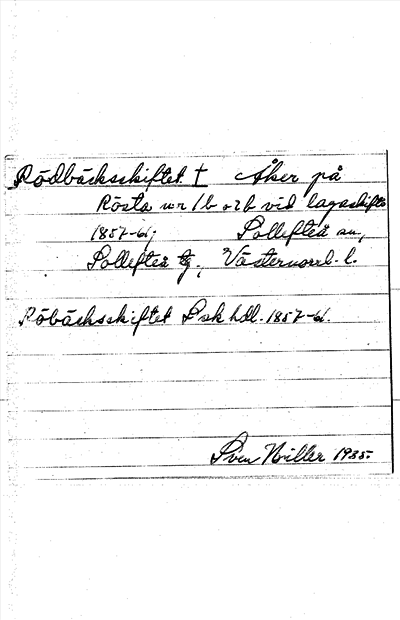 Rödbäcksskiftet † Åker på
Rösta nr 1b o 2b vid lagaskifte
1857-61; Sollefteå sn,
Sollefteå tg., Västernorrl. l.
Röbäcksskiftet Lsk hdl. 1857-61.
Sven Willer 1935.